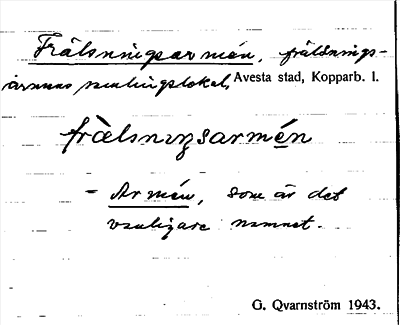 Frälsningsarmén, frälsnings-
armens samlingslokal, Avesta stad, Kopparb. l.
frälsnιŋsarmén
- Armén, som är det
vanligare namnet.
G. Qvarnström 1943.